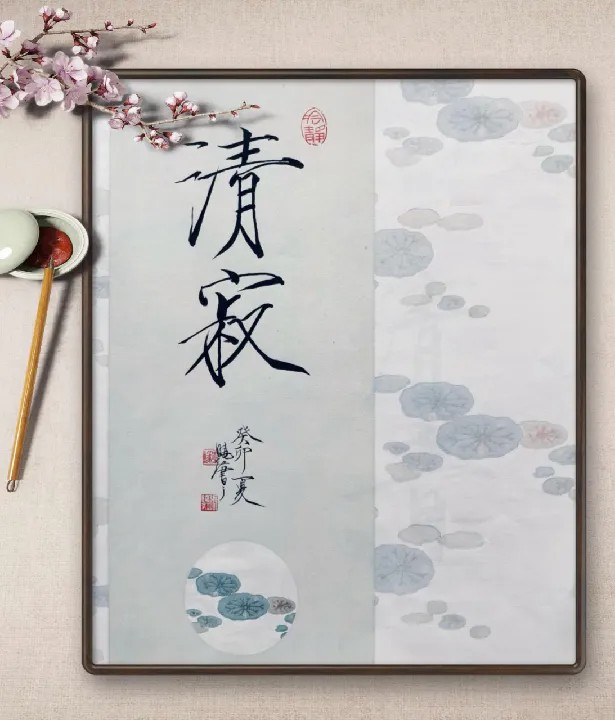 清寂
癸卯夏